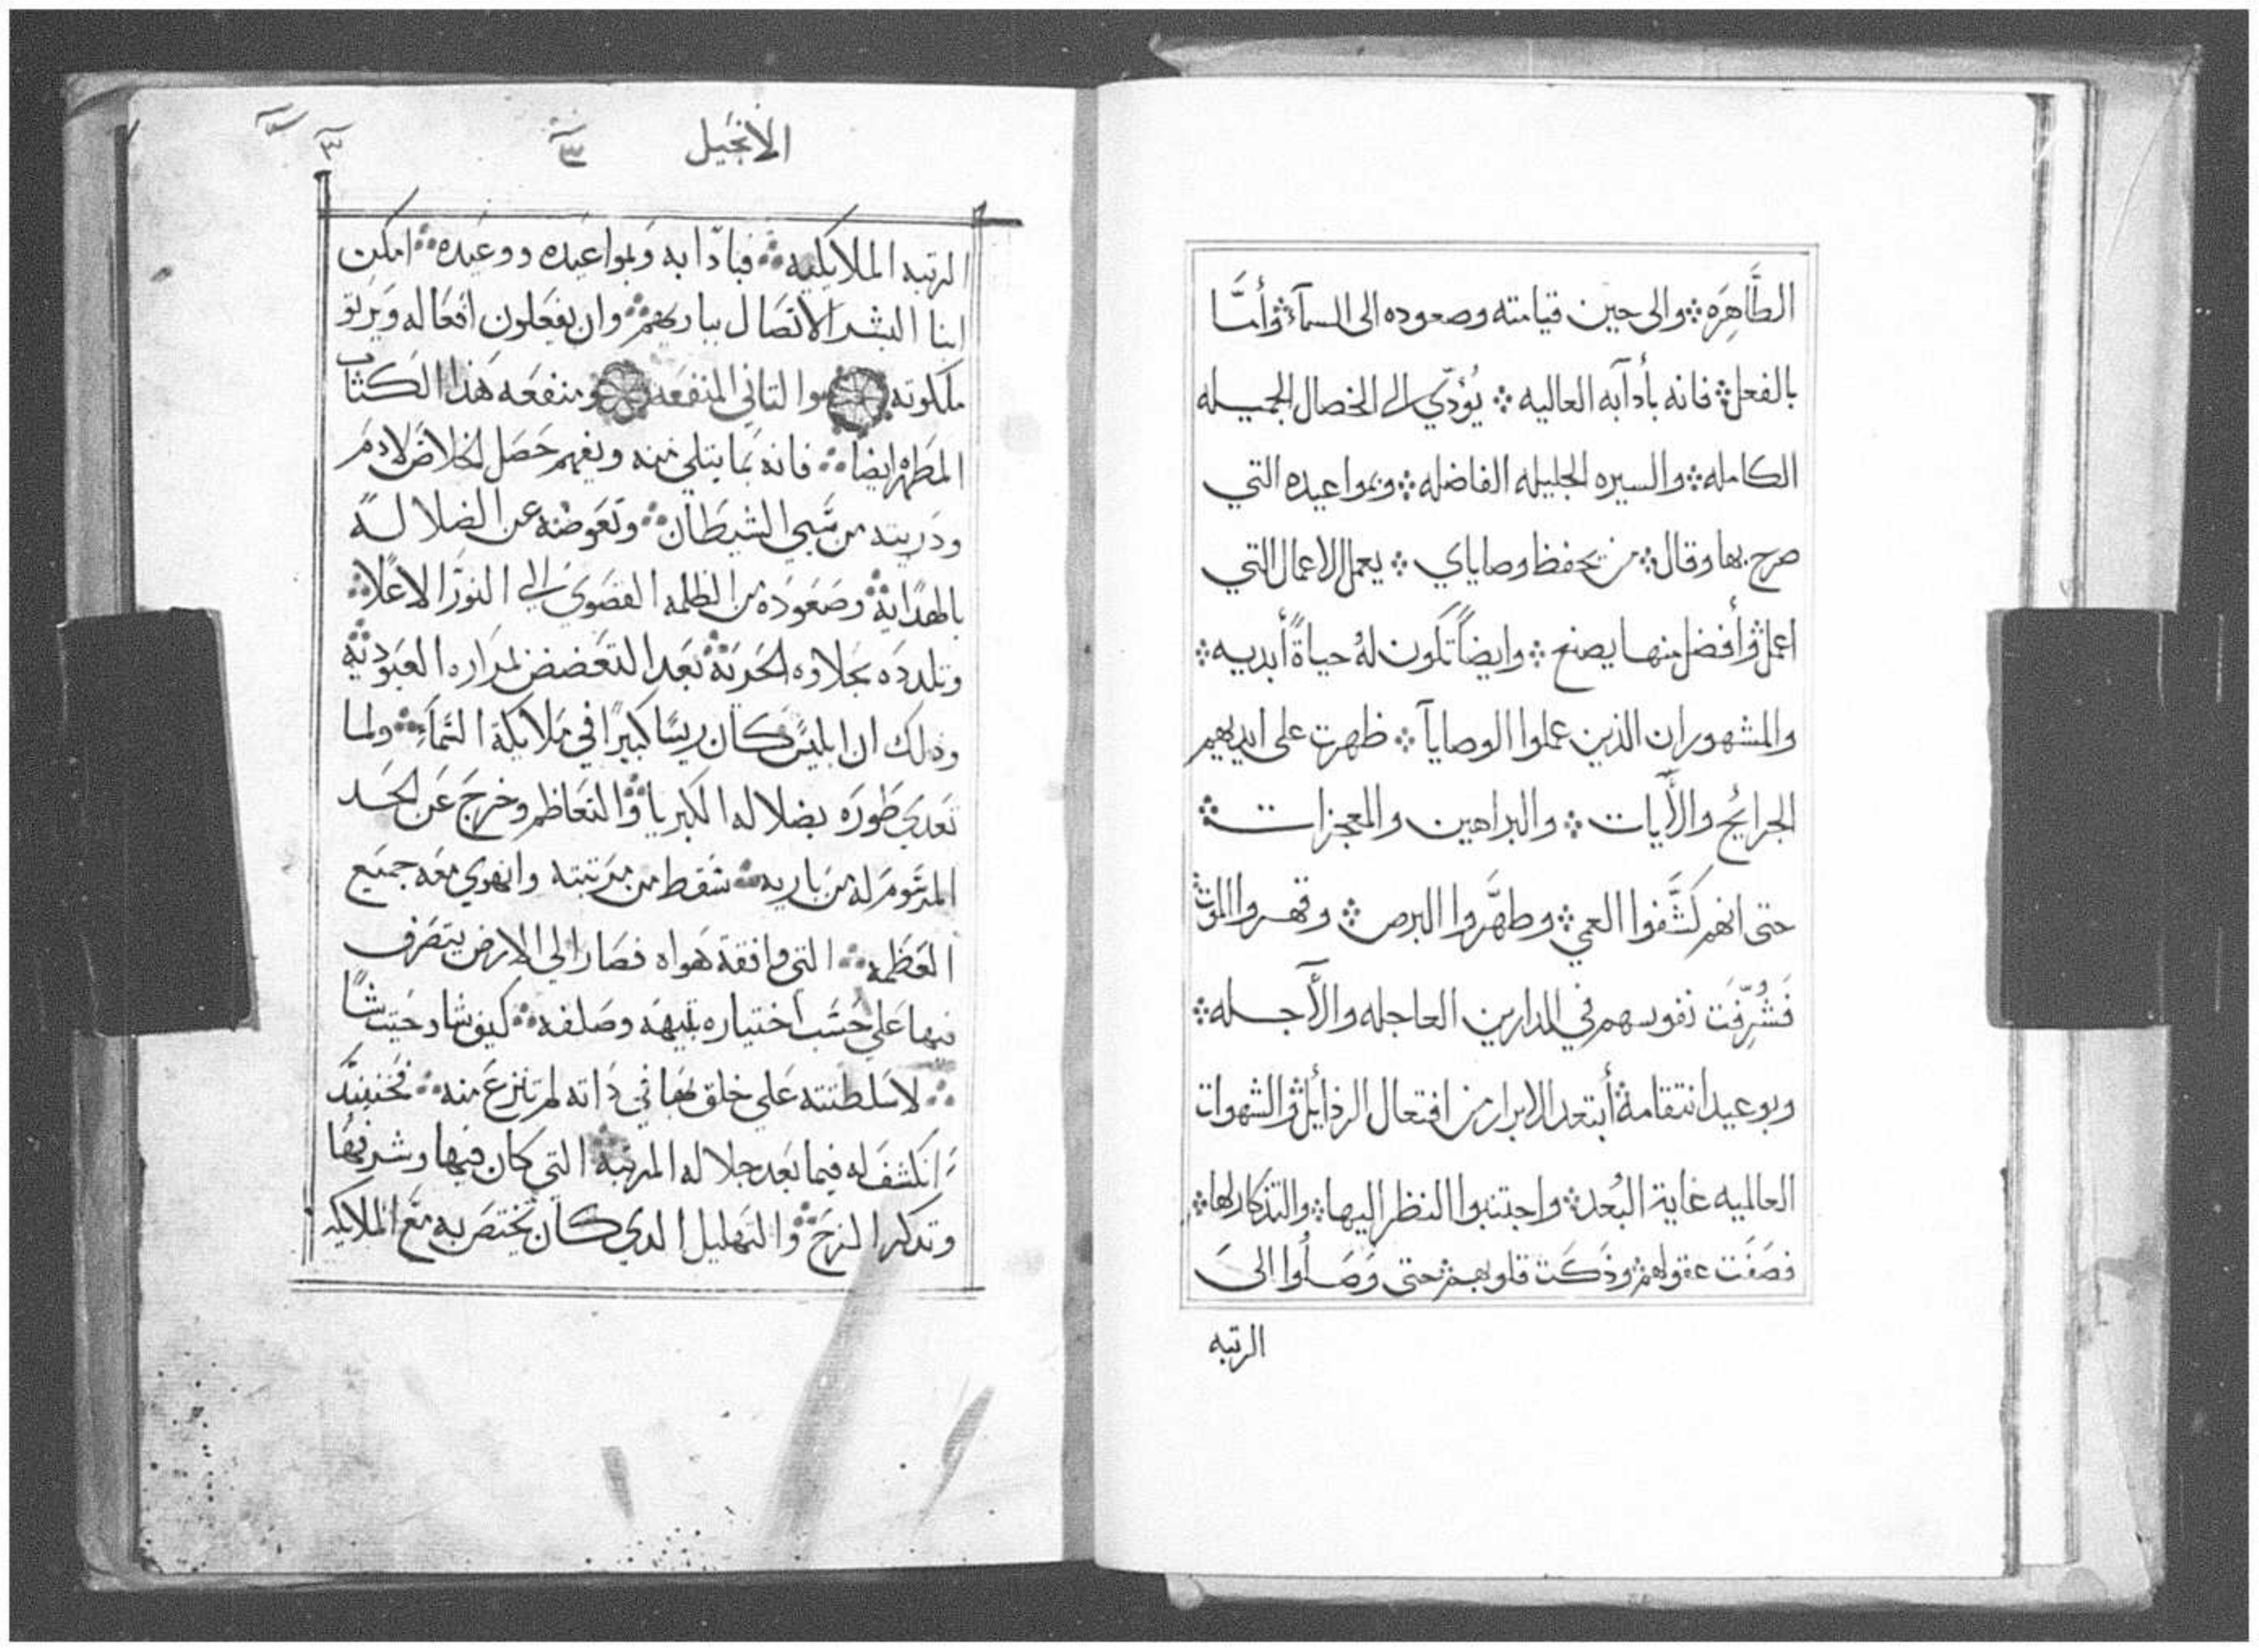 الطَّاهِرَه ۞ والى حين قيامته وصعوده الى السمآء ۞ وأمَّا
بالفعل ۞ فانه بأدآبه العاليه ۞ يُؤدّي الى الخصال الجميله
الكامله ۞ والسيره الجليله الفاضله ۞ وبمواعيده التي
صرح بها وقال ۞ من يحفظ وصاياي ۞ يعمل الاعمال التي
اعمل ۞ وأفضل منها يصنع ۞ وايضاً تكون لهُ حياةً أبديه ۞
والمشهور ان الذين عملوا الوصايآ ۞ ظهرت على ايديهم
الجرائح والأيات ۞ والبراهين والمعجزات ۞
حتى انهم كَشَّفوا العمي ۞ وطهَّروا البرص ۞ وقهروا الموت ۞
فَشُرِّفَت نفوسهم في الدارين العاجله والآجله ۞
وبوعيد انتقامه ۞ أبتعد الابرار من افتعال الرذأيل ۞ والشهوات
العالميه غاية البُعد ۞ واجتنبوا النظر اليها ۞ والتذكار لها ۞
فصَفَت عقولهم ۞ وذَكَت قلوبهم ۞ حتى وَصَلُوا الىَ
الرتبه
الانجيل ٣
الرتبه الملايكيه ۞ فبادابه وبمواعيده ووعيده ۞ امكن
ابنا البشر الاتصال بباريهم ۞ وان يفعلون افعاله ويرتو
ملكوته والتاني المنفعه ومنفعه هذا الكتاب
المطهر ايضا ۞ فانه بما يتلي منه ويفهم حصل الخلاص لادم
ودريته من سبي الشيطان ۞ وتعوضه عن الضلاله
بالهداية ۞ وصعوده من الظلمه القصوي الي النور الاعلا ۞
وتلدده بحلاوه الحرية ۞ بعد التغضض لمراره العبودية ۞
ودلك ان ابليس كان ريسا كبيرا في ملايكة السماء ۞ ولما
تعدي طوره بضلاله الكبريا ۞ والتعاظم وخرج عن الحد
المرسوم له من باريه ۞ سقط من مرتبته وانهوي معه جميع
العظمه ۞ التي وافقة هواه فصار الي الارض يتصرف
فيها علي حسب اختياره بتيهه وصلفه ۞ كيف شا وحيت شا
۞ لاسلطنته علي خلق لها في داته لم تنزع منه ۞ فحينيد
انكشف له فيما بعد جلاله المرتبة التي كان فيها وشرفها
وتدكر المزح ۞ والتهليل الدي كان يختص به مع الملايكه